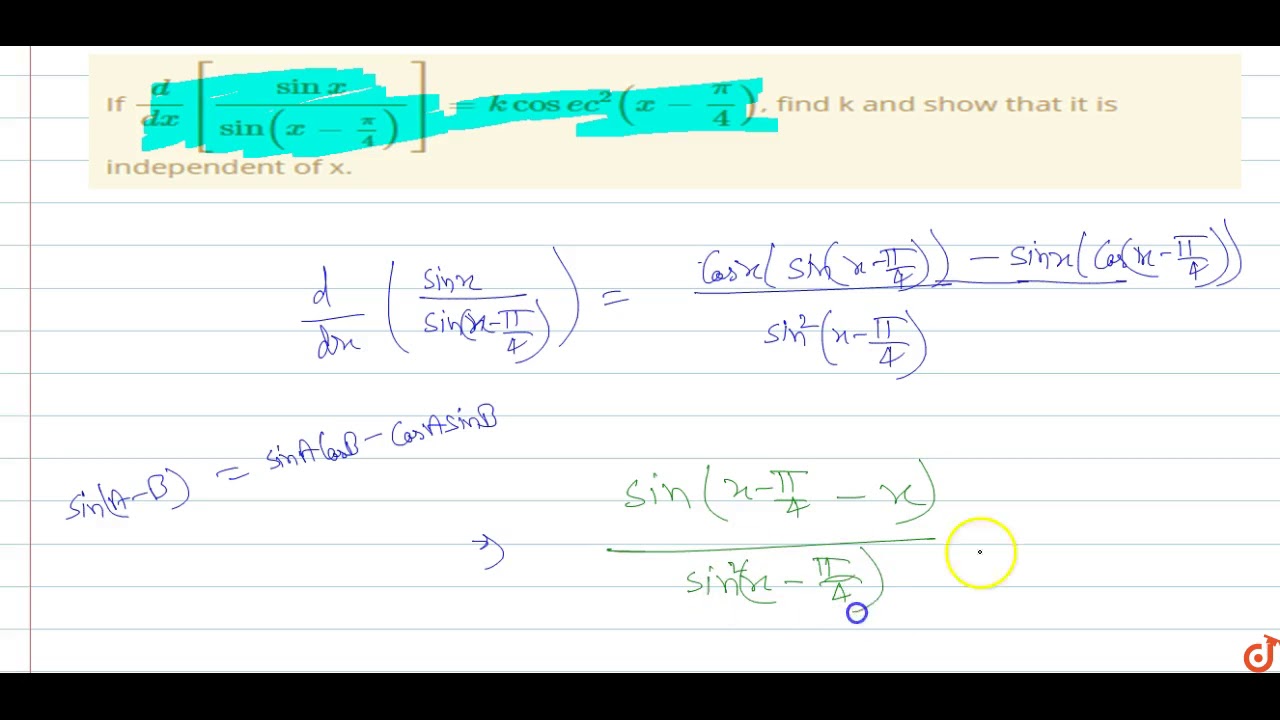 If d/dx [sin x / sin(x − π/4)] = k cos ec²(x − π/4), find k and show that it is
independent of x.
d/dx (sinx / sin(x−π/4)) = Cosx(sin(x−π/4)) − sinx(Cos(x−π/4)) / sin²(x−π/4)
sin(A−B) = sinACosB − CosAsinB
⇒ sin(x−π/4 − x) / sin²(x − π/4)
d